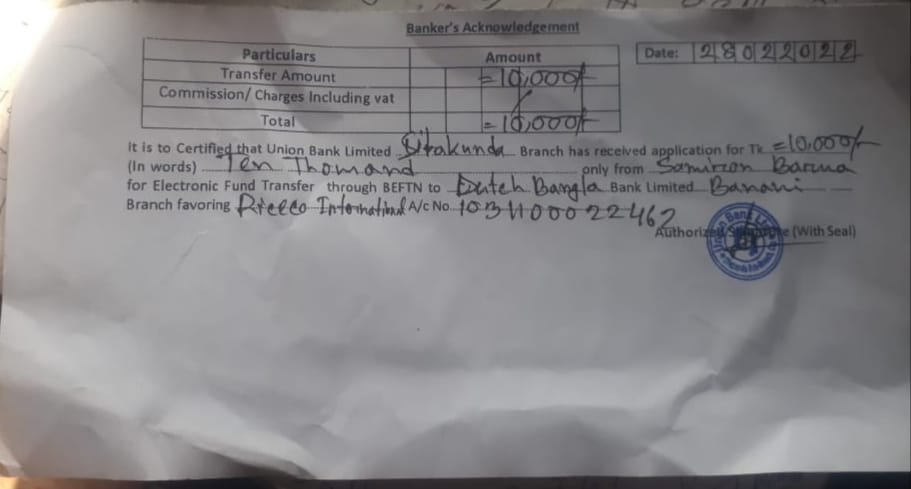 Banker's Acknowledgement
Date: 28022022
Particulars Amount
Transfer Amount =10,000/-
Commission/ Charges Including vat
Total =10,000/-
It is to Certified that Union Bank Limited Sitakunda Branch has received application for Tk =10,000/-
(In words) Ten Thousand only from Samiron Barua
for Electronic Fund Transfer through BEFTN to Dutch Bangla Bank Limited Banani
Branch favoring International A/c No. 1031100022462
Authorized Signature (With Seal)
Union Bank